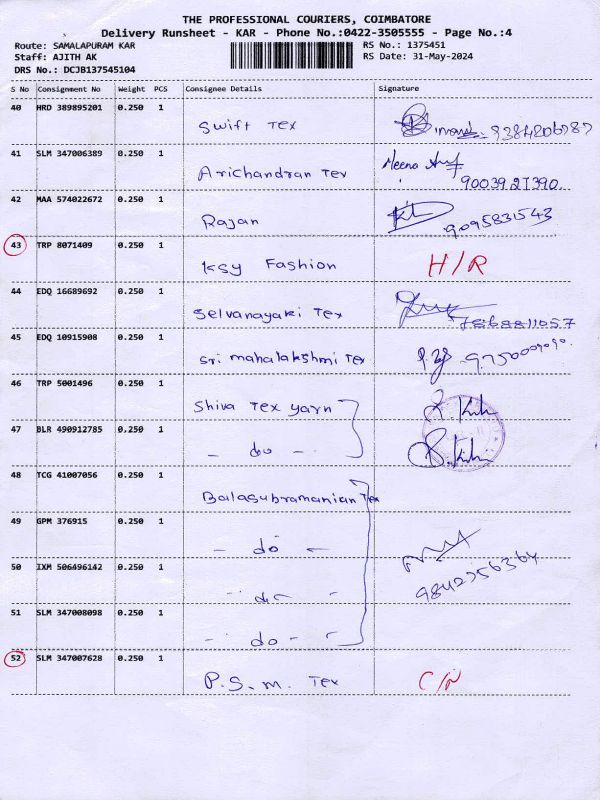 THE PROFESSIONAL COURIERS, COIMBATORE
Delivery Runsheet - KAR - Phone No.:0422-3505555 - Page No.:4
Route: SAMALAPURAM KAR RS No.: 1375451
Staff: AJITH AK RS Date: 31-May-2024
DRS No.: DCJB137545104
S No Consignment No Weight PCS Consignee Details Signature
40 HRD 389895201 0.250 1
Swift Tex 9384206787
41 SLM 347006389 0.250 1
Arichandran Tex Meena 9003927390
42 MAA 574022672 0.250 1
Rajan 9095831543
43 TRP 8071409 0.250 1
Ksy Fashion H/R
44 EDQ 16689692 0.250 1
Selvanayaki Tex
45 EDQ 10915908 0.250 1
Sri mahalakshmi Tex
46 TRP 5001496 0.250 1
Shiva Tex yarn
47 BLR 490912785 0.250 1
- do -
48 TCG 41007056 0.250 1
Balasubramanian Tex
49 GPM 376915 0.250 1
- do -
50 IXM 506496142 0.250 1
- do - 9842356364
51 SLM 347008098 0.250 1
- do -
52 SLM 347007628 0.250 1
P.S.M. Tex C/N